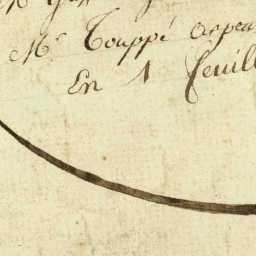 Mr Touppé arpen
En 1 feuill